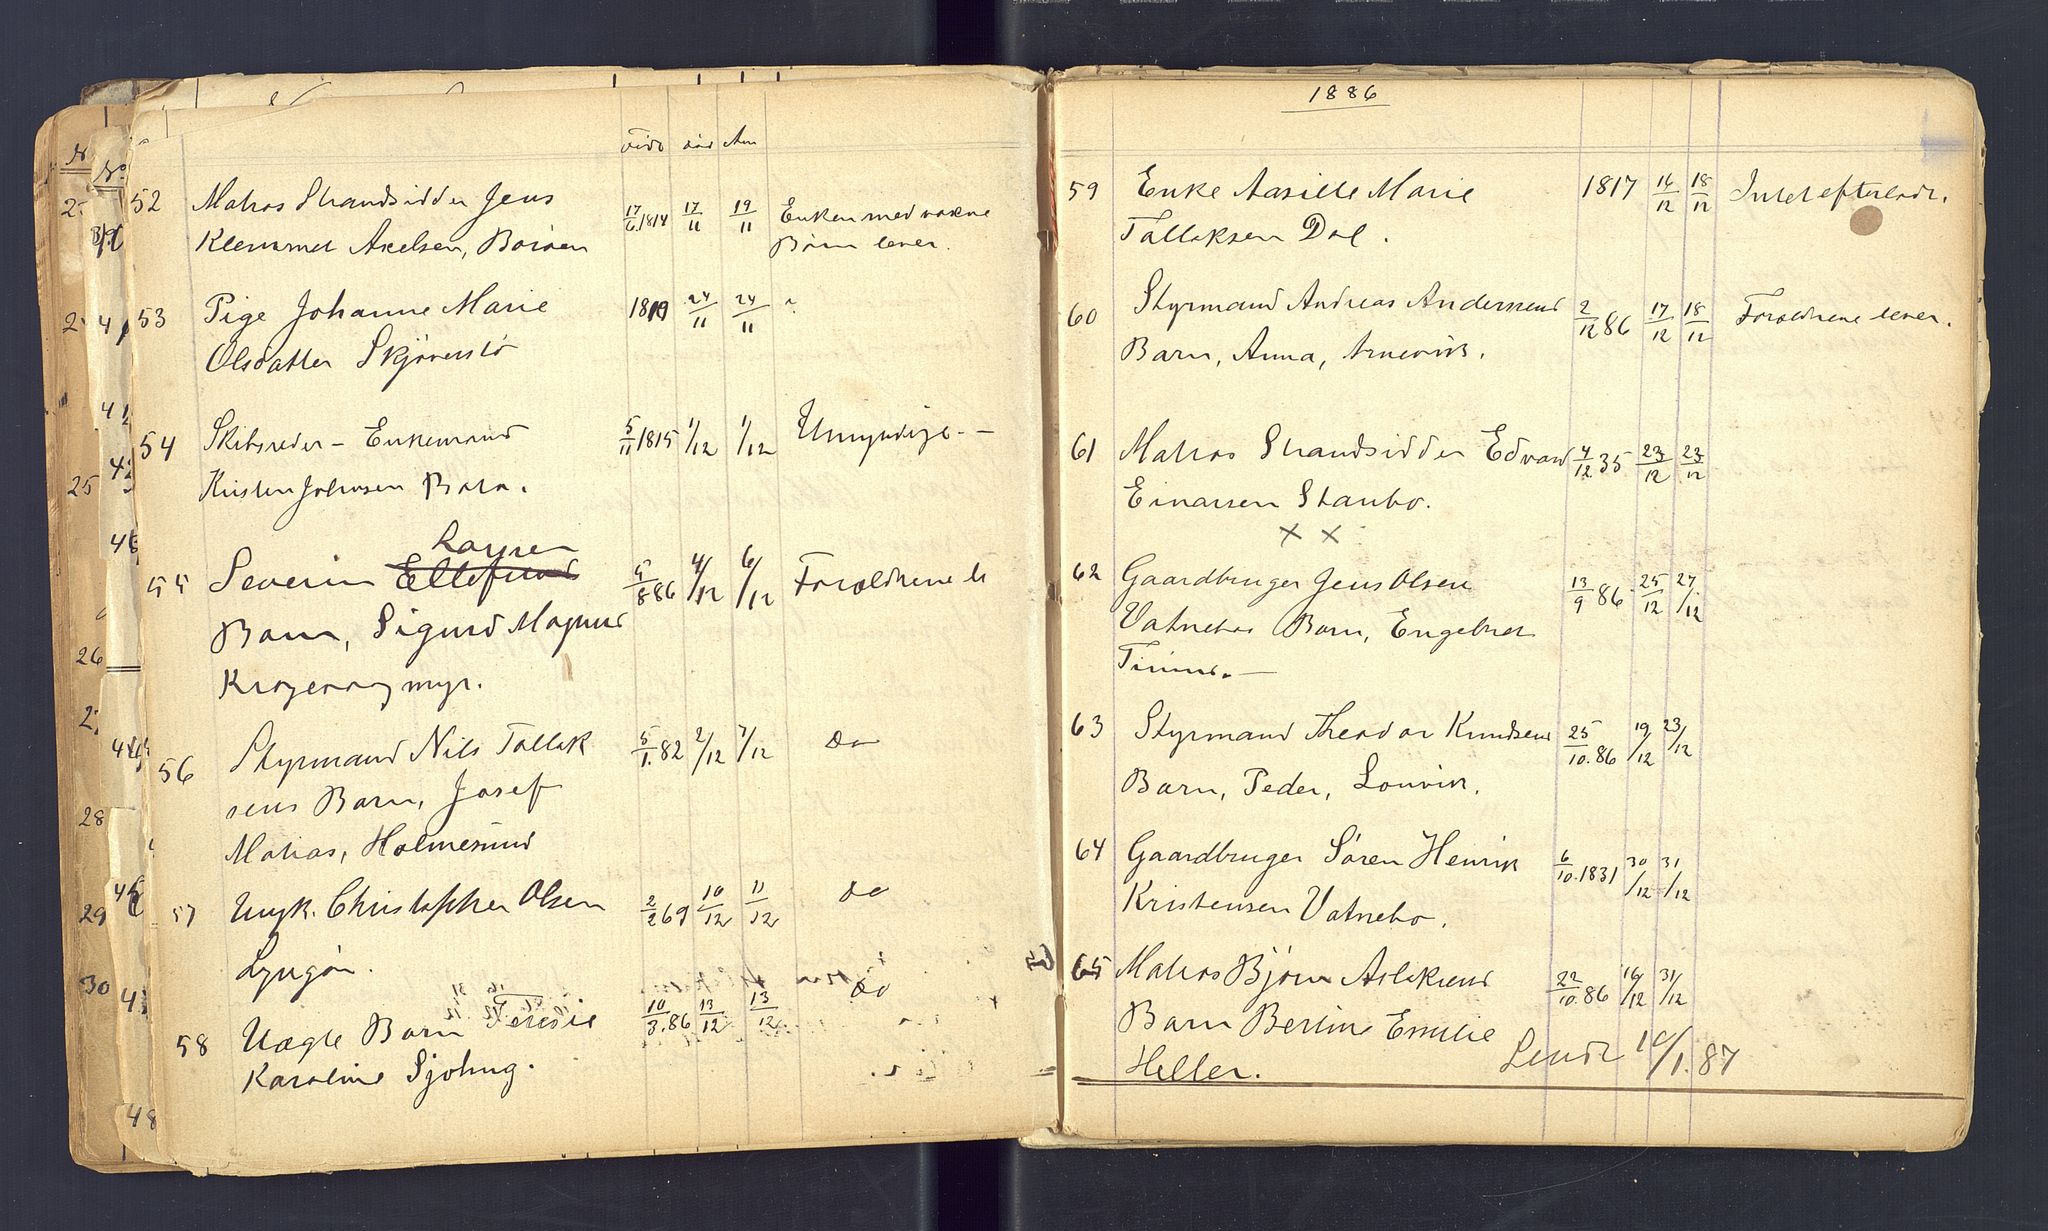 52 Matros Strandsidder Jens 17/6 1814 17/11 19/11 Enken med voxne
Klemmet Axelsen, Borøen Børn lever.
53 Pige Johanne Marie 1819 24/11 24/11 ?
Olsdatter Skjøverstø
54 Skibsreder - Enkemand 5/11 1815 1/12 1/12 Umyndige -
Kristen Johnsen Bota.
Larsen
55 Severin Ellefsens 5/8 86 4/12 6/12 Forældrene l
Barn, Sigurd Magnus
myr.
56 Styrmand Nils Tallak 5/1. 82 2/12 7/12 do
sens Barn, Josef
Matias, Holmesund
57 Ungk. Christopher Olsen 2/2 69 10/12 11/12 do
Lyngør.
58 Uægte Barn Teresie 10/3. 86 13/12 13/12 do
Karoline Sjøhug.
1886
59 Enke Aasille Marie 1817 16/12 18/12 Intet efterladt.
Tallaksen Dal.
60 Styrmand Andreas Anderssens 2/12 86 17/12 18/12 Forældrene lever.
Barn, Anna, Arnevik.
61 Matros Strandsidder Edvard 4/12. 35 23/12 23/12
Einarsen Staubo.
x x
62 Gaardbruger Jens Olsen 13/9 86. 25/12 27/12
Vatnebos Barn, Engebret
63 Styrmand Theodor Knudsens 25/10. 86 19/12 23/12
Barn, Peder, Louvik.
64 Gaardbruger Søren Henrik 6/10. 1831 30/12 31/12
Kristensen Vatnebo.
65 Matros Bjørn Aslaksens 22/10. 86 16/12 31/12
Barn Bertine Emilie
Heller. Sendt 10/1. 87